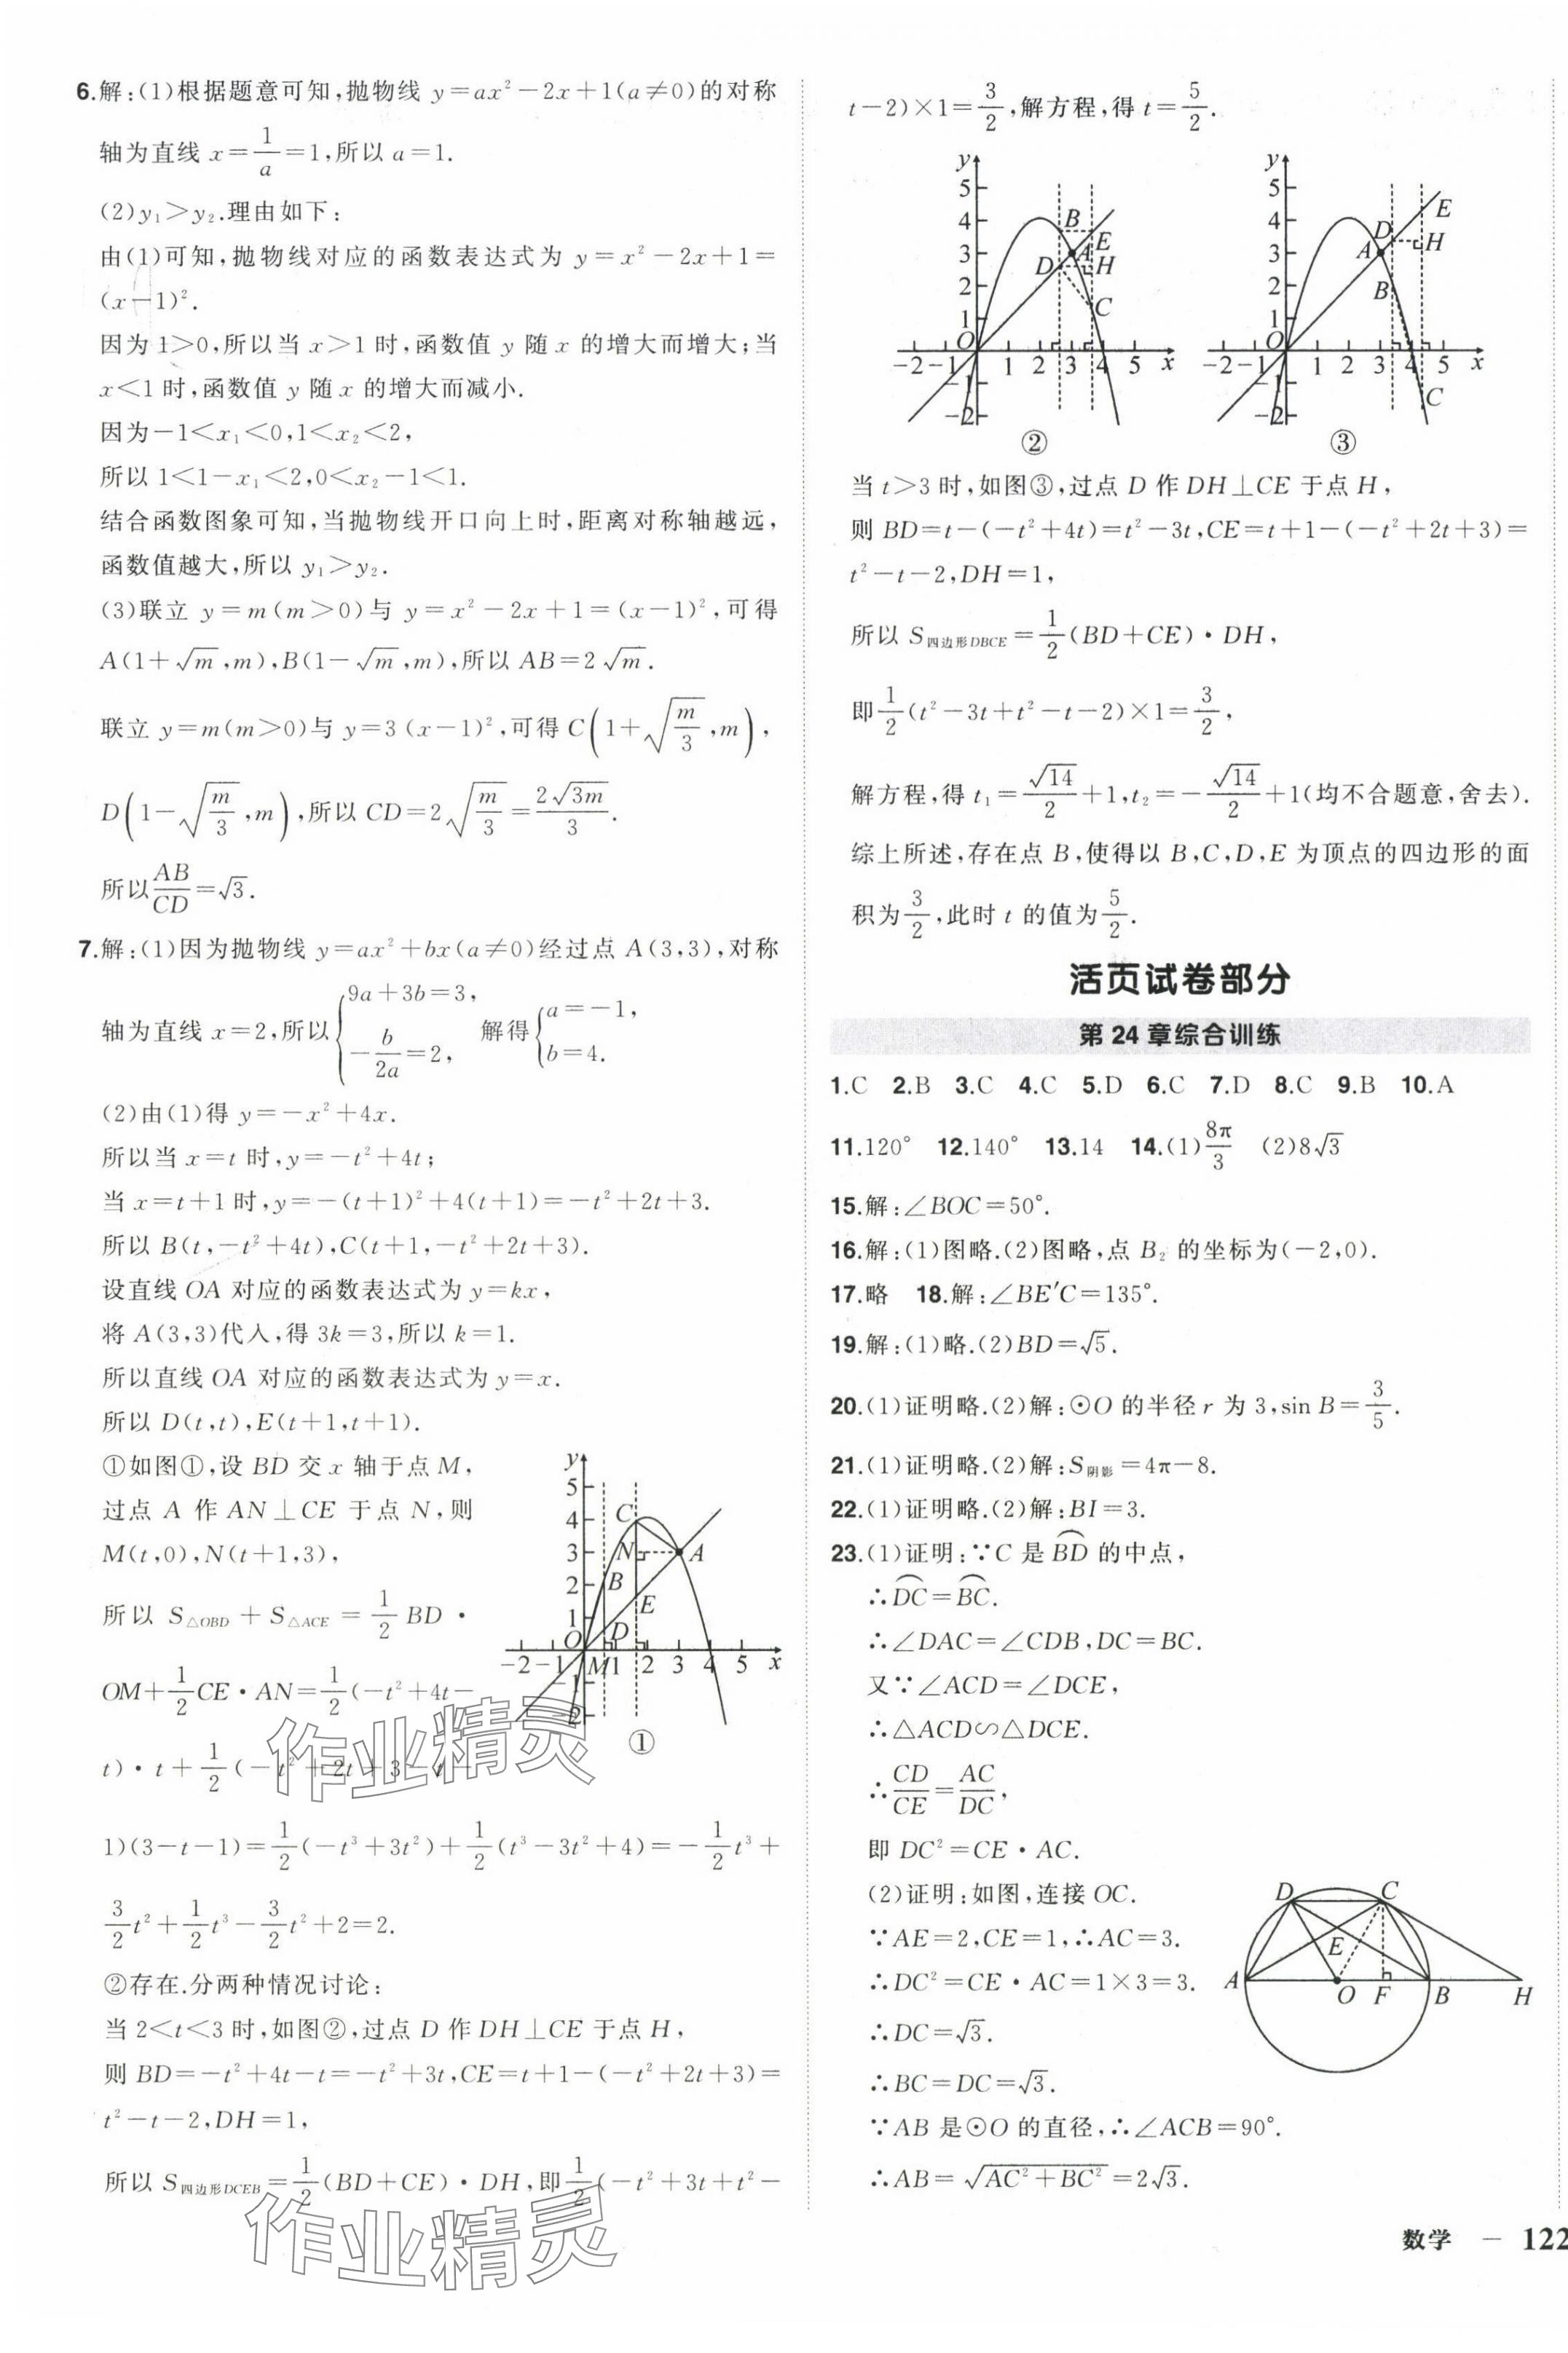 6.解:(1)根据题意可知,抛物线 y=ax²-2x+1(a≠0)的对称
轴为直线 x=1/a=1,所以 a=1.
(2)y₁>y₂.理由如下:
由(1)可知,抛物线对应的函数表达式为 y=x²-2x+1=
(x-1)².
因为 1>0,所以当 x>1 时,函数值 y 随 x 的增大而增大;当
x<1 时,函数值 y 随 x 的增大而减小.
因为-1<x₁<0,1<x₂<2,
所以 1<1-x₁<2,0<x₂-1<1.
结合函数图象可知,当抛物线开口向上时,距离对称轴越远,
函数值越大,所以 y₁>y₂.
(3)联立 y=m(m>0)与 y=x²-2x+1=(x-1)²,可得
A(1+√m,m),B(1-√m,m),所以 AB=2√m.
联立 y=m(m>0)与 y=3(x-1)²,可得 C(1+√(m/3),m),
D(1-√(m/3),m),所以 CD=2√(m/3)=2√(3m)/3.
所以AB/CD=√3.
7.解:(1)因为抛物线 y=ax²+bx(a≠0)经过点 A(3,3),对称
轴为直线 x=2,所以{9a+3b=3, -b/2a=2, 解得{a=-1, b=4.
(2)由(1)得 y=-x²+4x.
所以当 x=t 时,y=-t²+4t;
当 x=t+1 时,y=-(t+1)²+4(t+1)=-t²+2t+3.
所以 B(t,-t²+4t),C(t+1,-t²+2t+3).
设直线 OA 对应的函数表达式为 y=kx,
将 A(3,3)代入,得 3k=3,所以 k=1.
所以直线 OA 对应的函数表达式为 y=x.
所以 D(t,t),E(t+1,t+1).
①如图①,设 BD 交 x 轴于点 M,
过点 A 作 AN⊥CE 于点 N,则
M(t,0),N(t+1,3),
所以 S△OBD+S△ACE=1/2BD·
OM+1/2CE·AN=1/2(-t²+4t-
t)·t+1/2(-t²+2t+3-t-
1)(3-t-1)=1/2(-t³+3t²)+1/2(t³-3t²+4)=-1/2t³+
3/2t²+1/2t³-3/2t²+2=2.
y
5
4
3
2
1
C
N
A
B
E
D
O
-2
-1
M
1
2
3
4
5
x
-1
-2
①
②存在.分两种情况讨论:
当 2<t<3 时,如图②,过点 D 作 DH⊥CE 于点 H,
则 BD=-t²+4t-t=-t²+3t,CE=t+1-(-t²+2t+3)=
t²-t-2,DH=1,
所以 S四边形DCEB=1/2(BD+CE)·DH,即1/2(-t²+3t+t²-
t-2)×1=3/2,解方程,得 t=5/2.
y
5
4
3
2
1
B
E
A
D
H
C
O
-2
-1
1
2
3
4
5
x
-1
-2
②
y
5
4
3
2
1
E
D
H
A
B
O
-2
-1
1
2
3
4
5
x
-1
-2
C
③
当 t>3 时,如图③,过点 D 作 DH⊥CE 于点 H,
则 BD=t-(-t²+4t)=t²-3t,CE=t+1-(-t²+2t+3)=
t²-t-2,DH=1,
所以 S四边形DBCE=1/2(BD+CE)·DH,
即1/2(t²-3t+t²-t-2)×1=3/2,
解方程,得 t₁=√14/2+1,t₂=-√14/2+1(均不合题意,舍去).
综上所述,存在点 B,使得以 B,C,D,E 为顶点的四边形的面
积为3/2,此时 t 的值为5/2.
活页试卷部分
第 24 章综合训练
1.C 2.B 3.C 4.C 5.D 6.C 7.D 8.C 9.B 10.A
11.120° 12.140° 13.14 14.(1)8π/3 (2)8√3
15.解:∠BOC=50°.
16.解:(1)图略.(2)图略,点 B₂ 的坐标为(-2,0).
17.略 18.解:∠BE′C=135°.
19.解:(1)略.(2)BD=√5.
20.(1)证明略.(2)解:⊙O 的半径 r 为 3,sin B=3/5.
21.(1)证明略.(2)解:S阴影=4π-8.
22.(1)证明略.(2)解:BI=3.
23.(1)证明:∵C 是 B͡D 的中点,
∴D͡C=B͡C.
∴∠DAC=∠CDB,DC=BC.
又∵∠ACD=∠DCE,
∴△ACD∽△DCE.
∴CD/CE=AC/DC,
即 DC²=CE·AC.
(2)证明:如图,连接 OC.
∵AE=2,CE=1,∴AC=3.
∴DC²=CE·AC=1×3=3.
∴DC=√3.
∴BC=DC=√3.
∵AB 是⊙O 的直径,∴∠ACB=90°.
∴AB=√(AC²+BC²)=2√3.
D
C
E
A
O
F
B
H
作业精灵
作业精灵
数学 — 122